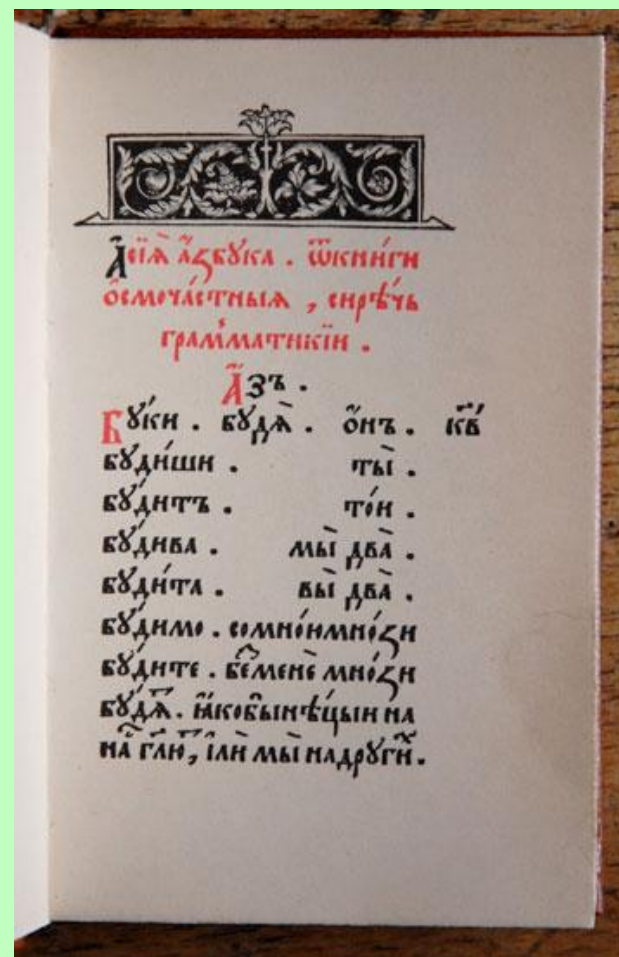 А сїѧ̀ а҆́збꙋка . ѿ кни́ги
ѻ҆смоча́стныѧ , сирѣ́чь
грамма́тикїи .
А҆́зъ .
Бꙋ́ки . бꙋдѧ̀ . ѻ҆́нъ . к҃в
бꙋди́ши . ты̀ .
бꙋди́тъ . то́и .
бꙋди́ва . мы̀ два̀ .
бꙋди́та . вы̀ два̀ .
бꙋ́димо . сомно́и мно́ѕи
бꙋ́дите . беⷥменѐ мно́ѕи
бꙋ́дѧⷮ . ꙗ҆́кобы нѣ́цыи на
на̀ гл҃ю , і҆лѝ мы̀ надрꙋги́ⷯ .